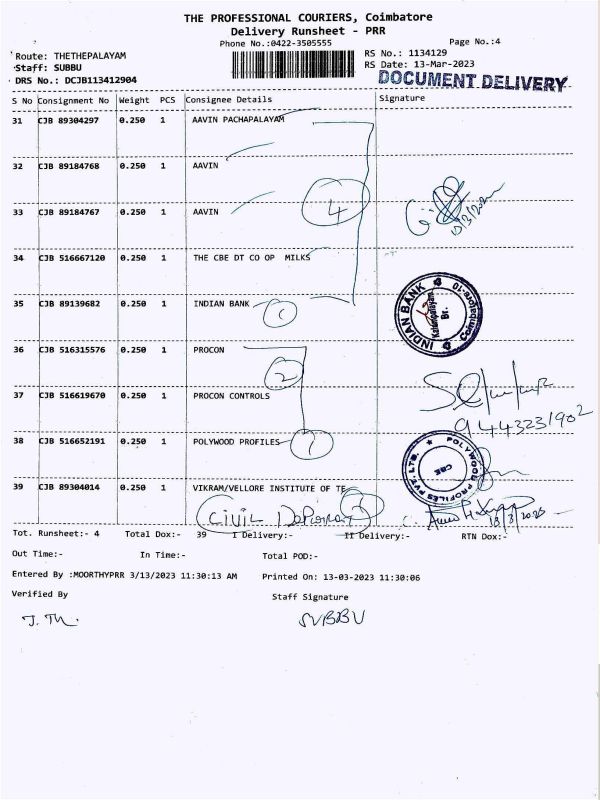 THE PROFESSIONAL COURIERS, Coimbatore
Delivery Runsheet - PRR
Phone No.:0422-3505555
Page No.:4
Route: THETHEPALAYAM
RS No.: 1134129
Staff: SUBBU
RS Date: 13-Mar-2023
DRS No.: DCJB113412904
DOCUMENT DELIVERY
S No Consignment No Weight PCS Consignee Details Signature
31 CJB 89304297 0.250 1 AAVIN PACHAPALAYAM
32 CJB 89184768 0.250 1 AAVIN
33 CJB 89184767 0.250 1 AAVIN
4
34 CJB 516667120 0.250 1 THE CBE DT CO OP MILKS
35 CJB 89139682 0.250 1 INDIAN BANK
1
INDIAN BANK
Br.
Coimbatore-10
36 CJB 516315576 0.250 1 PROCON
2
37 CJB 516619670 0.250 1 PROCON CONTROLS
9443231902
38 CJB 516652191 0.250 1 POLYWOOD PROFILES
1
POLYWOOD PROFILES PVT. LTD.
CBE
39 CJB 89304014 0.250 1 VIKRAM/VELLORE INSTITUTE OF TE
CIVIL
Tot. Runsheet:- 4 Total Dox:- 39 I Delivery:- II Delivery:- RTN Dox:-
Out Time:- In Time:- Total POD:-
Entered By :MOORTHYPRR 3/13/2023 11:30:13 AM Printed On: 13-03-2023 11:30:06
Verified By Staff Signature
SUBBU